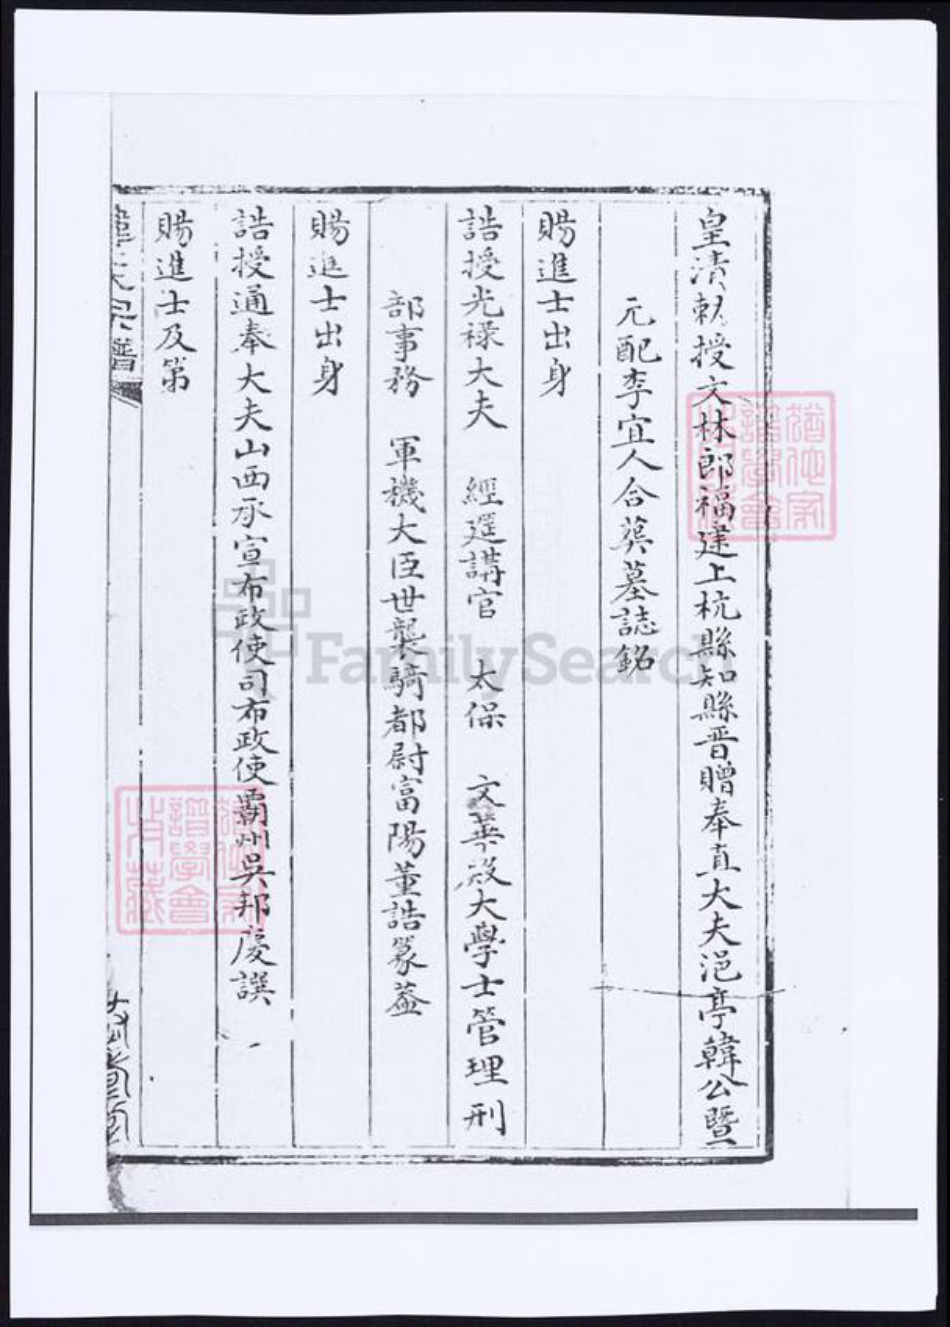 皇清勅授文林郎福建上杭縣知縣晋贈奉直大夫浥亭韓公暨
元配李宜人合葬墓誌銘
賜進士出身
誥授光禄大夫 經筵講官 太保 文華殿大學士管理刑
部事務 軍機大臣世襲騎都尉富陽董誥篆葢
賜進士出身
誥授通奉大夫山西承宣布政使司布政使霸州吳邦慶譔
賜進士及第
韓氏宗譜
FamilySearch